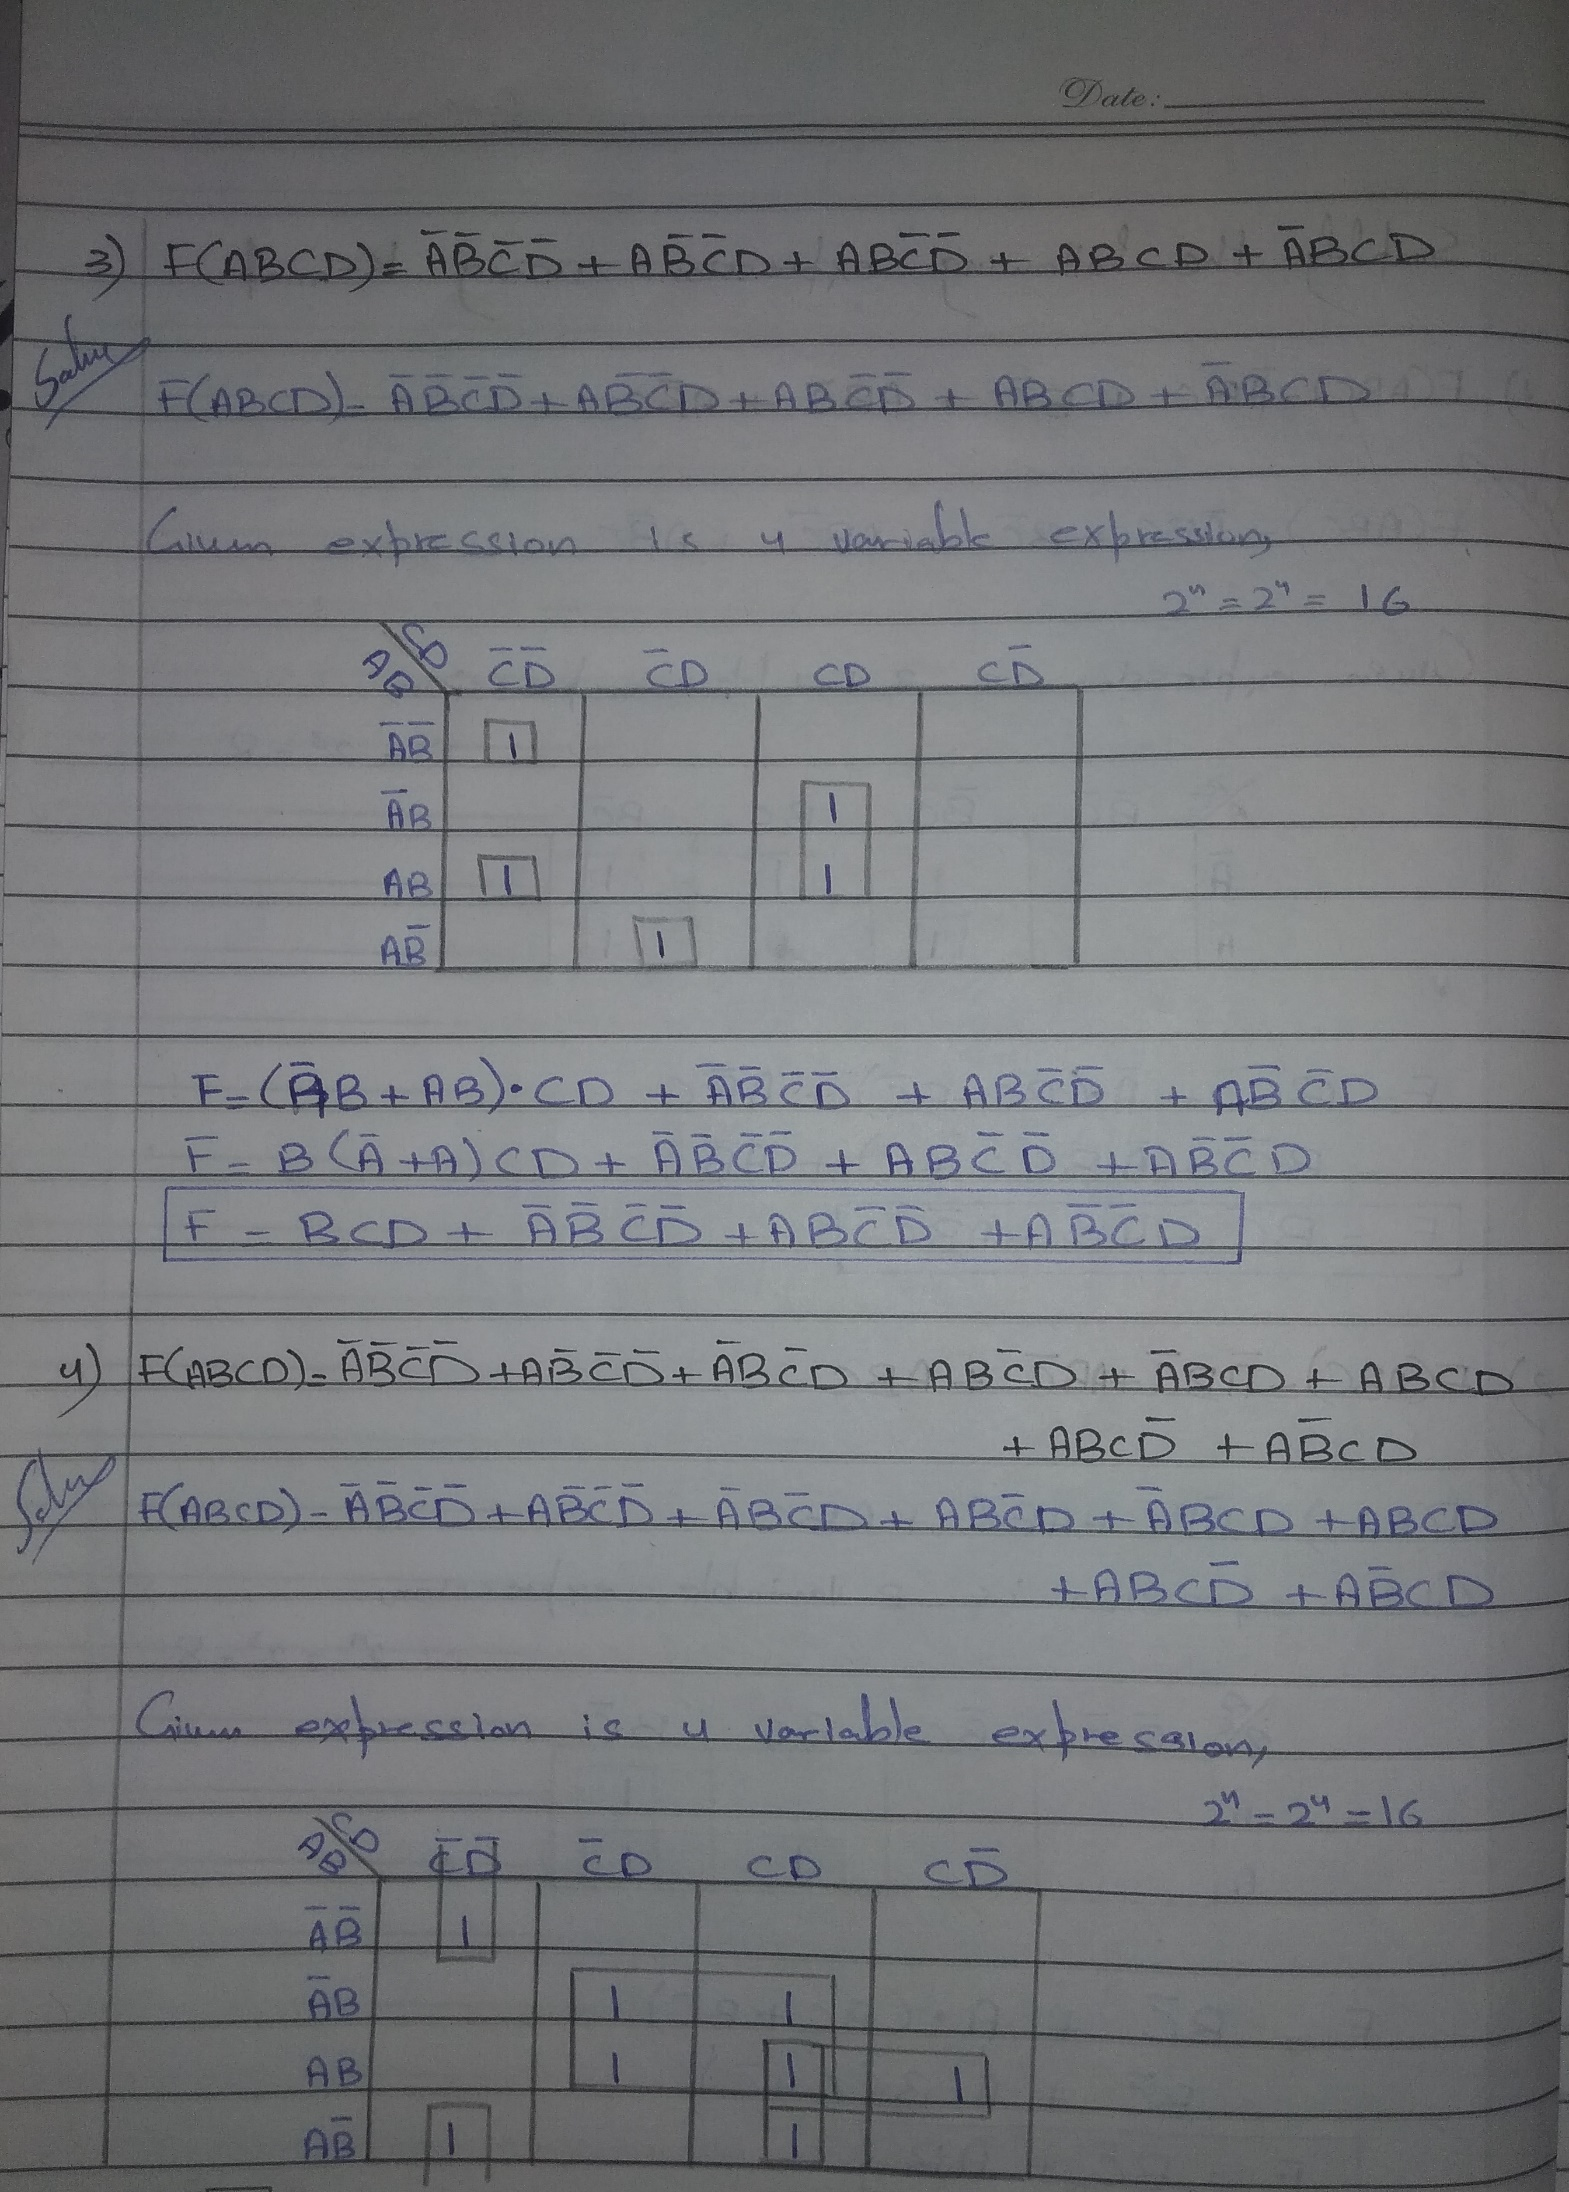 Date:
3) F(ABCD)= A̅B̅C̅D̅ + AB̅C̅D + ABC̅D̅ + ABCD + A̅BCD
Solve
F(ABCD)= A̅B̅C̅D̅ + AB̅C̅D + ABC̅D̅ + ABCD + A̅BCD
Given expression is 4 variable expression,
2ⁿ = 2⁴ = 16
AB CD C̅D̅ C̅D CD CD̅
A̅B̅ 1
A̅B 1
AB 1 1
AB̅ 1
F = (A̅B + AB)·CD + A̅B̅C̅D̅ + ABC̅D̅ + AB̅C̅D
F = B(A̅+A)CD + A̅B̅C̅D̅ + ABC̅D̅ + AB̅C̅D
F = BCD + A̅B̅C̅D̅ + ABC̅D̅ + AB̅C̅D
4) F(ABCD)= A̅B̅C̅D̅ + AB̅C̅D̅ + A̅BC̅D + ABC̅D + A̅BCD + ABCD
+ ABCD̅ + AB̅CD
Solve
F(ABCD)= A̅B̅C̅D̅ + AB̅C̅D̅ + A̅BC̅D + ABC̅D + A̅BCD + ABCD
+ ABCD̅ + AB̅CD
Given expression is 4 variable expression,
2ⁿ = 2⁴ = 16
AB CD C̅D̅ C̅D CD CD̅
A̅B̅ 1
A̅B 1 1
AB 1 1 1
AB̅ 1 1